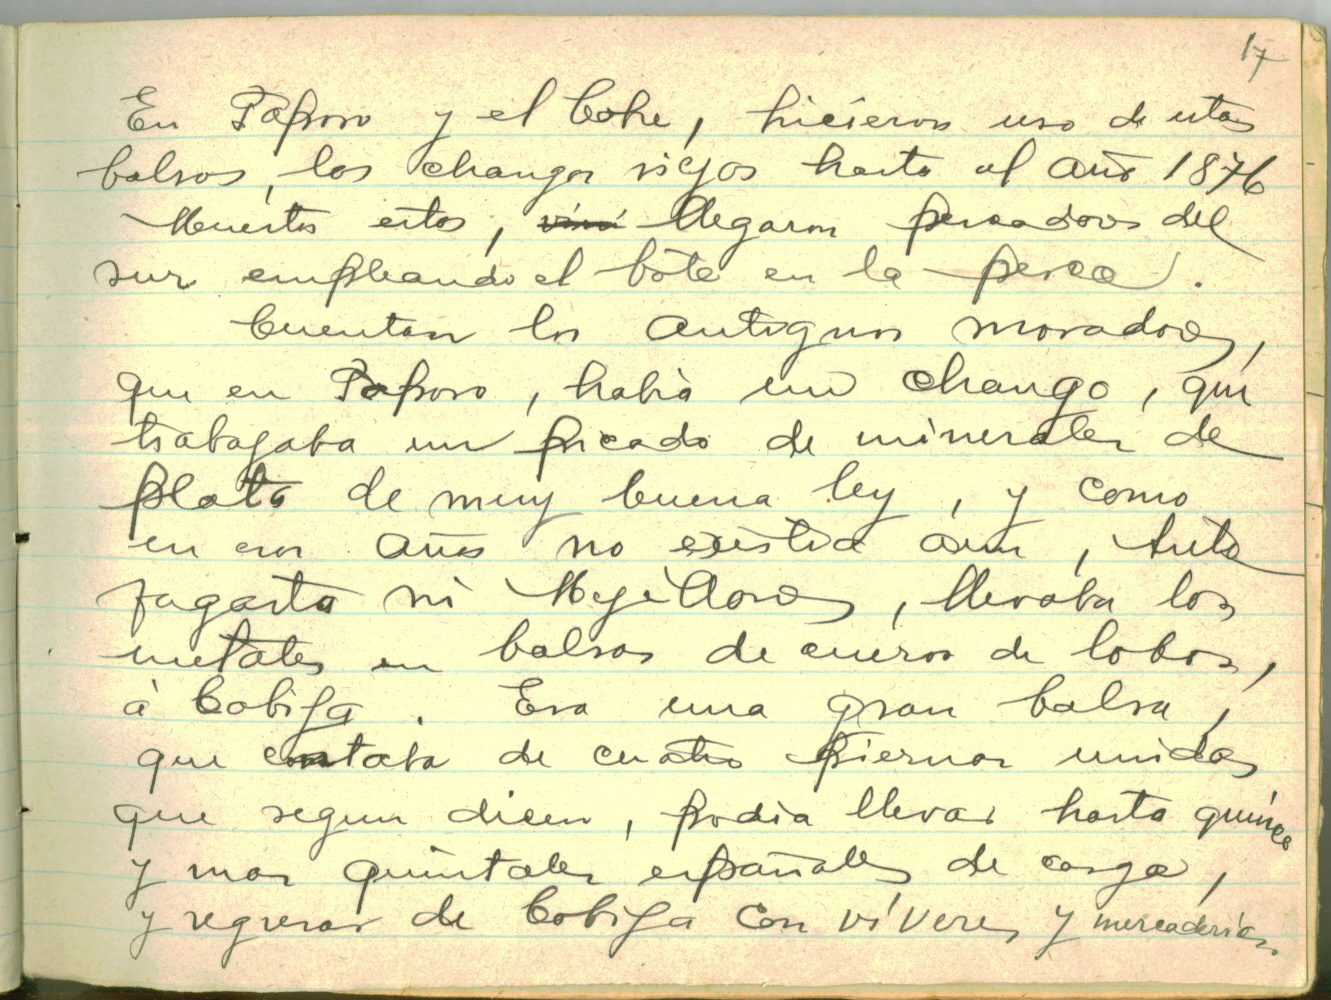 17
En Paposo y el Cobre, hicieron uso de estas
balsas, los changos viejos hasta el año 1876
Muertos estos, llegaron pescadores del
sur empleando el bote en la pesca.
Cuentan los antiguos moradores,
que en Paposo, habia un chango, que
trabajaba un picado de minerales de
plata de muy buena ley, y como
en esos años no existia aun, Anto
fagasta ni Mejillones, llevaba los
metales en balsas de cueros de lobos,
á Cobija. Era una gran balsa,
que contaba de cuatro piernas unidas
que segun dicen, podia llevar hasta quince
y mas quintales españoles de carga,
y regresar de Cobija con víveres y mercaderías